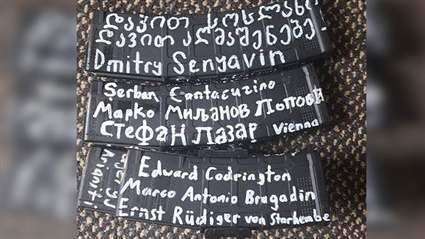 დავით სოსლან
დავით აღმაშენებე
Dmitry Senyavin
Şerban Cantacuzino
Марко Миљанов Попови
СТЕФАН ЛАЗАР Vienna
Edward Codrington
Marco Antonio Bragadin
Ernst Rüdiger von Starhembe